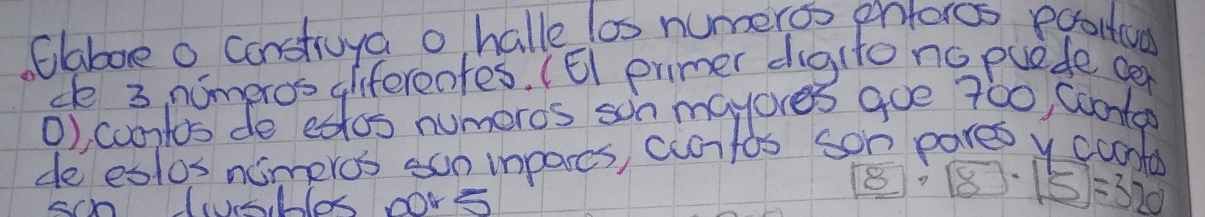 Elabore o construya o halle los numeros enteros positivos
de 3 números diferentes. (El primer digito no puede ser
0), cuantos de estos numeros son mayores que 700, cuantos
de estos números son impares, cuantos son pares y cuantos
son divisibles por 5
8 · 8 · 5 = 320